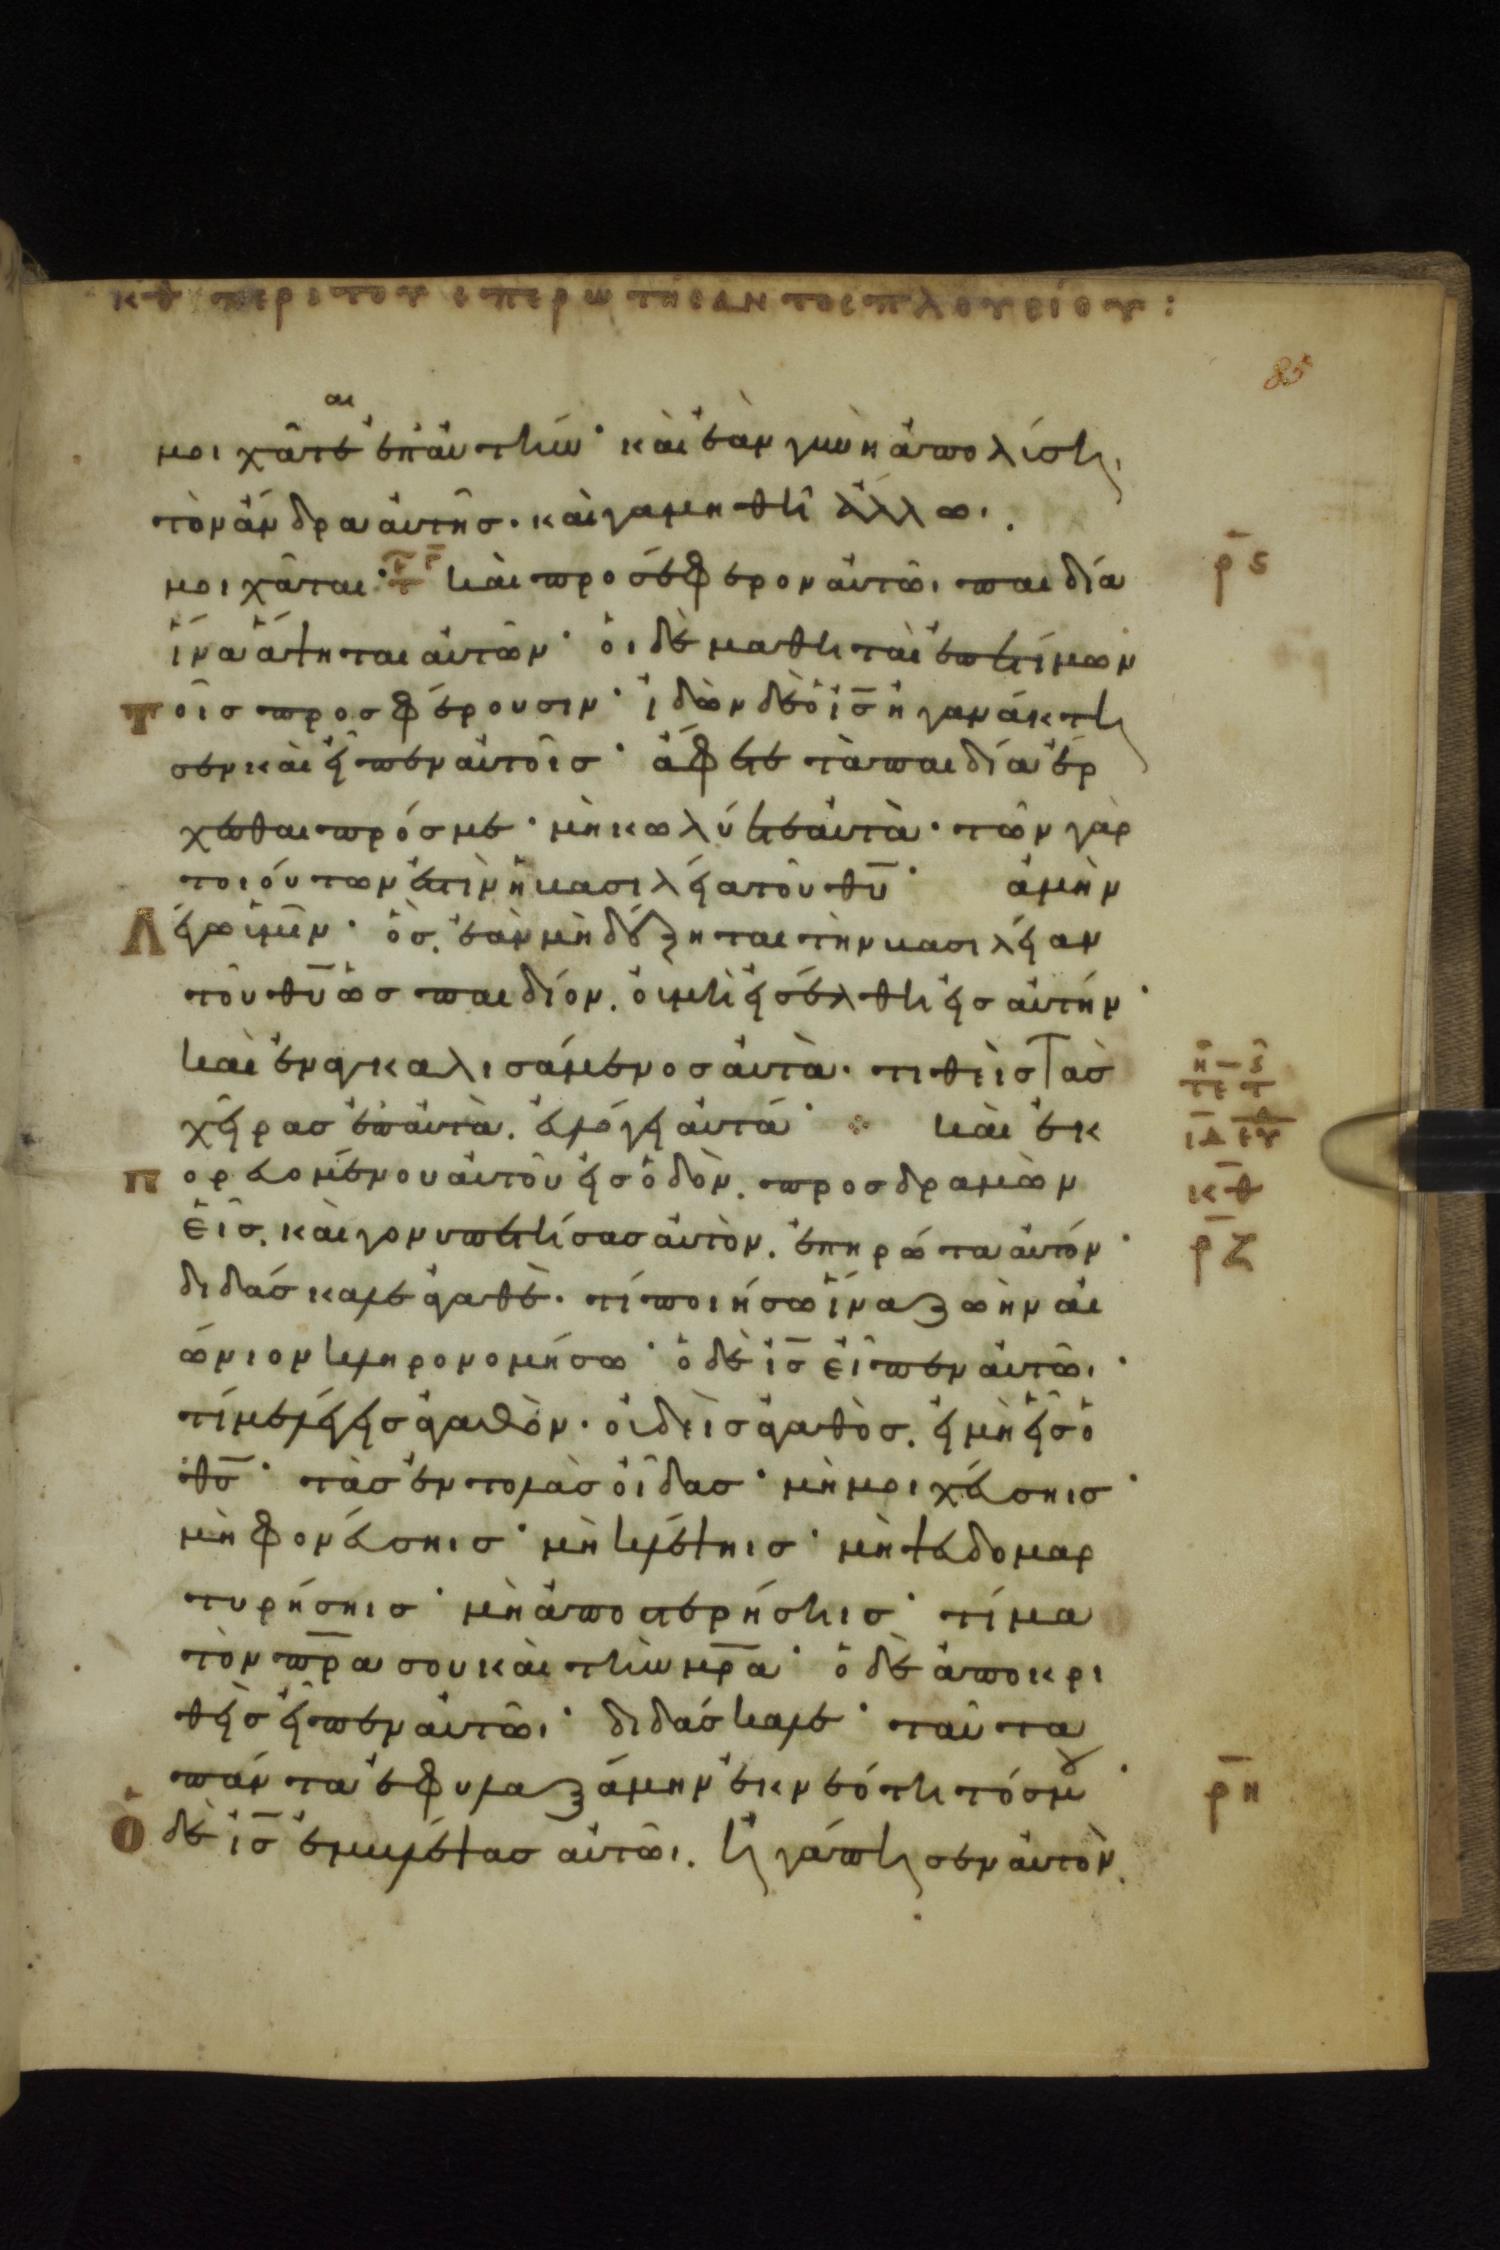 κθ περι του επερωτησαντος πλουσίου :
85
μοιχᾶται ἐπ' ἀυτήν · καὶ ἐὰν γυνὴ ἀπολύση
τὸν ἄνδρα ἀυτῆσ · καὶ γαμηθῆ ἄλλω ·
μοιχᾶται · καὶ προσέφερον ἀυτῶι παιδία
ἵνα ἅψηται ἀυτῶν · ὁι δὲ μαθηταὶ ἐπετίμων
τοῖσ προσφέρουσιν · ἰδὼν δὲ ὁ ι̅σ̅ ἠγανάκτη
σεν καὶ εἶπεν ἀυτοῖσ · ἄφετε τὰ παιδία ἔρ
χεσθαι πρόσ με · μὴ κωλύετε ἀυτὰ · τῶν γὰρ
τοιούτων ἐστὶν ἡ βασιλεία τοῦ θ̅υ̅ · ἀμὴν
λέγω ὑμῖν · ὃσ ἐὰν μὴ δέξηται τὴν βασιλείαν
τοῦ θ̅υ̅ ὡσ παιδίον, ὀυ μὴ εἰσέλθη εἰσ αὐτήν ·
καὶ ἐναγκαλισάμενοσ ἀυτὰ · τιθεὶσ τὰσ
χεῖρασ ἐπ' ἀυτὰ, ἐυλόγει ἀυτά · καὶ ἐκ
πορευομένου ἀυτοῦ εἰσ ὁδὸν, προσδραμὼν
εἷσ, καὶ γονυπετήσασ ἀυτὸν, ἐπηρώτα ἀυτόν ·
διδάσκαλε ἀγαθὲ · τί ποιήσω ἵνα ζωὴν αἰ
ώνιον κληρονομήσω · ὁ δὲ ι̅σ̅ εἶπεν ἀυτῶι ·
τί με λέγεισ ἀγαθὸν · ὀυδεὶσ ἀγαθὸσ, εἰ μὴ εἷσ ὁ
θ̅σ̅ · τὰσ ἐντολὰσ οἶδασ · μὴ μοιχεύσηισ ·
μὴ φονεύσηισ · μὴ κλέψηισ · μὴ ψευδομαρ
τυρήσηισ · μὴ ἀποστερήσηισ · τίμα
τὸν π̅ρ̅α σου καὶ τὴν μ̅ρ̅α · ὁ δὲ ἀποκρι
θεὶσ εἶπεν ἀυτῶι · διδάσκαλε · ταῦτα
πάντα ἐφυλαξάμην ἐκ νεότητόσ μου ·
ὁ δὲ ι̅σ̅ ἐμβλέψασ ἀυτῶι, ἠγάπησεν ἀυτὸν,
ρ̅ς
ι̅δ
κ̅θ
ρ̅ζ
ρ̅η